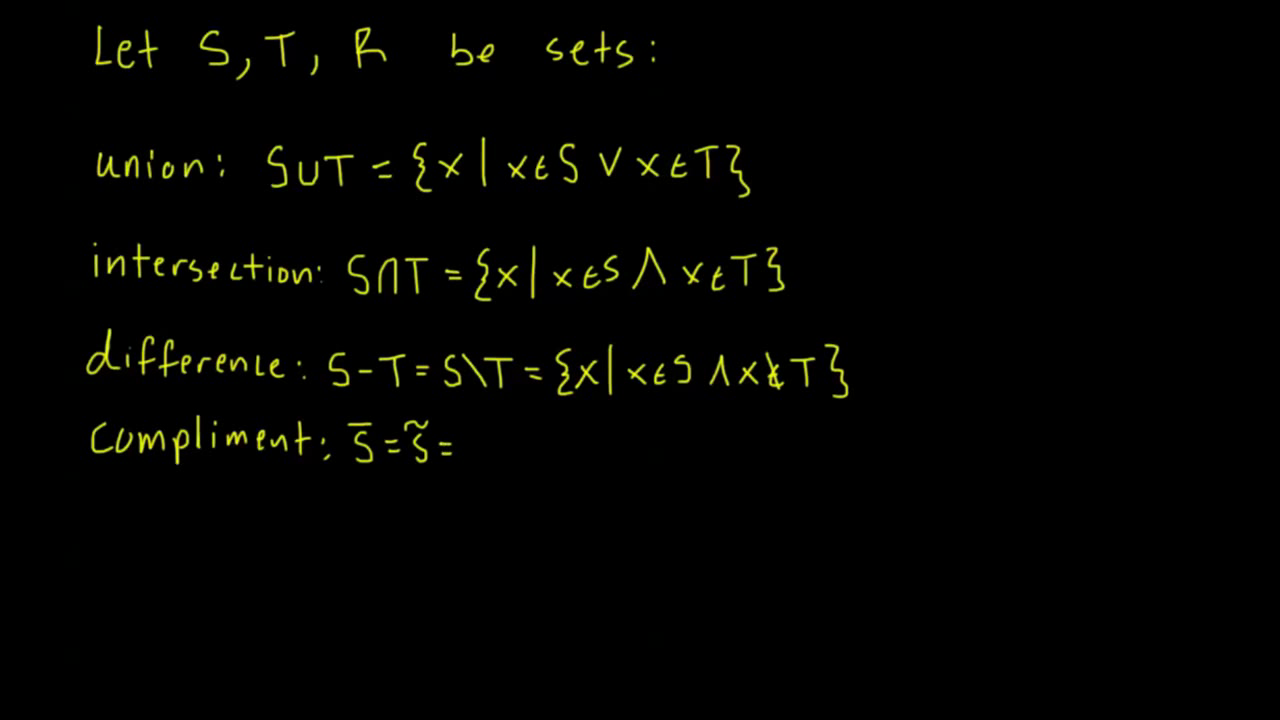 Let S, T, R be sets:
union: S∪T = {x | x∈S ∨ x∈T}
intersection: S∩T = {x | x∈S ∧ x∈T}
difference: S-T = S\T = {x | x∈S ∧ x∉T}
compliment: S̅ = S̃ =